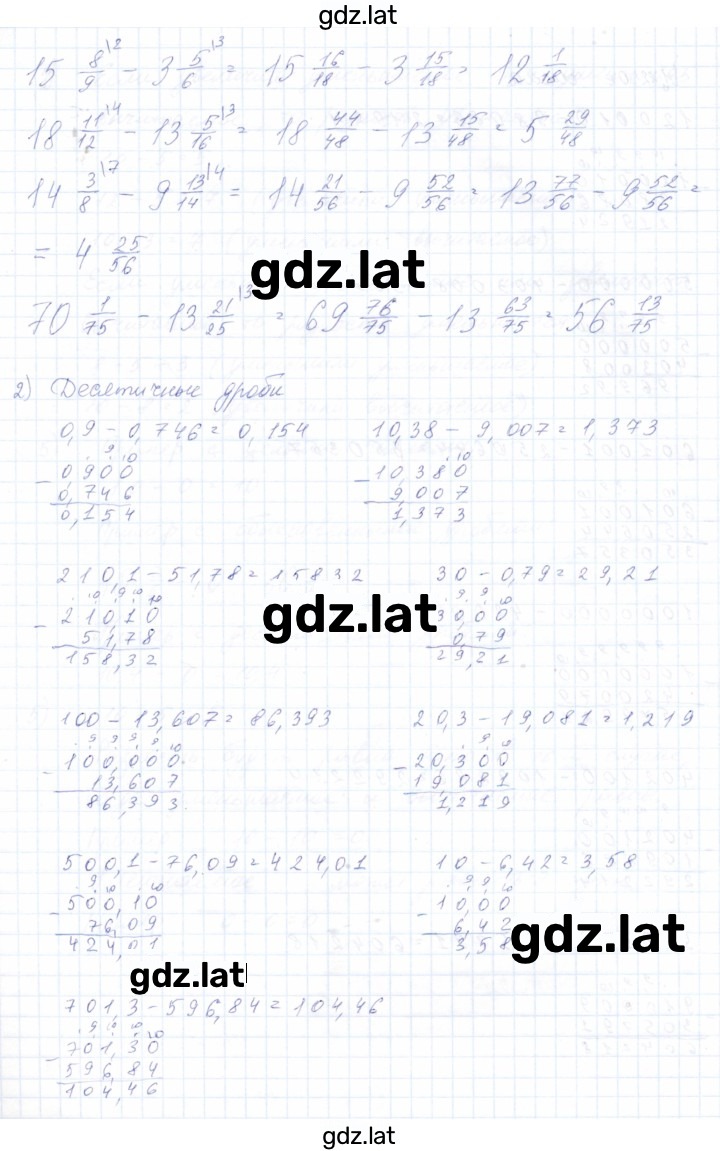 gdz.lat
15 8/9 \2 - 3 5/6 \3 = 15 16/18 - 3 15/18 = 12 1/18
18 11/12 \4 - 13 5/16 \3 = 18 44/48 - 13 15/48 = 5 29/48
14 3/8 \7 - 9 13/14 \4 = 14 21/56 - 9 52/56 = 13 77/56 - 9 52/56 =
= 4 25/56
gdz.lat
70 1/75 - 13 21/25 \3 = 69 76/75 - 13 63/75 = 56 13/75
2) Десятичные дроби
0,9 - 0,746 = 0,154 10,38 - 9,007 = 1,373
. 9 10 . 10
- 0,900 - 10,380
0,746 9,007
0,154 1,373
210,1 - 51,78 = 158,32 30 - 0,79 = 29,21
gdz.lat
. 10 9 10 10 . 9 9 10
- 210,10 30,00
51,78 0,79
158,32 29,21
100 - 13,607 = 86,393 20,3 - 19,081 = 1,219
. 9 9 9 9 10 . 9 10
- 100,000 - 20,300
13,607 19,081
86,393 1,219
500,1 - 76,09 = 424,01 10 - 6,42 = 3,58
. 9 10 . 10 . 9 9 10
- 500,10 - 10,00
76,09 6,42
424,01 3,58
gdz.lat
gdz.lat
701,3 - 596,84 = 104,46
. 9 10 10 10
- 701,30
596,84
104,46
gdz.lat